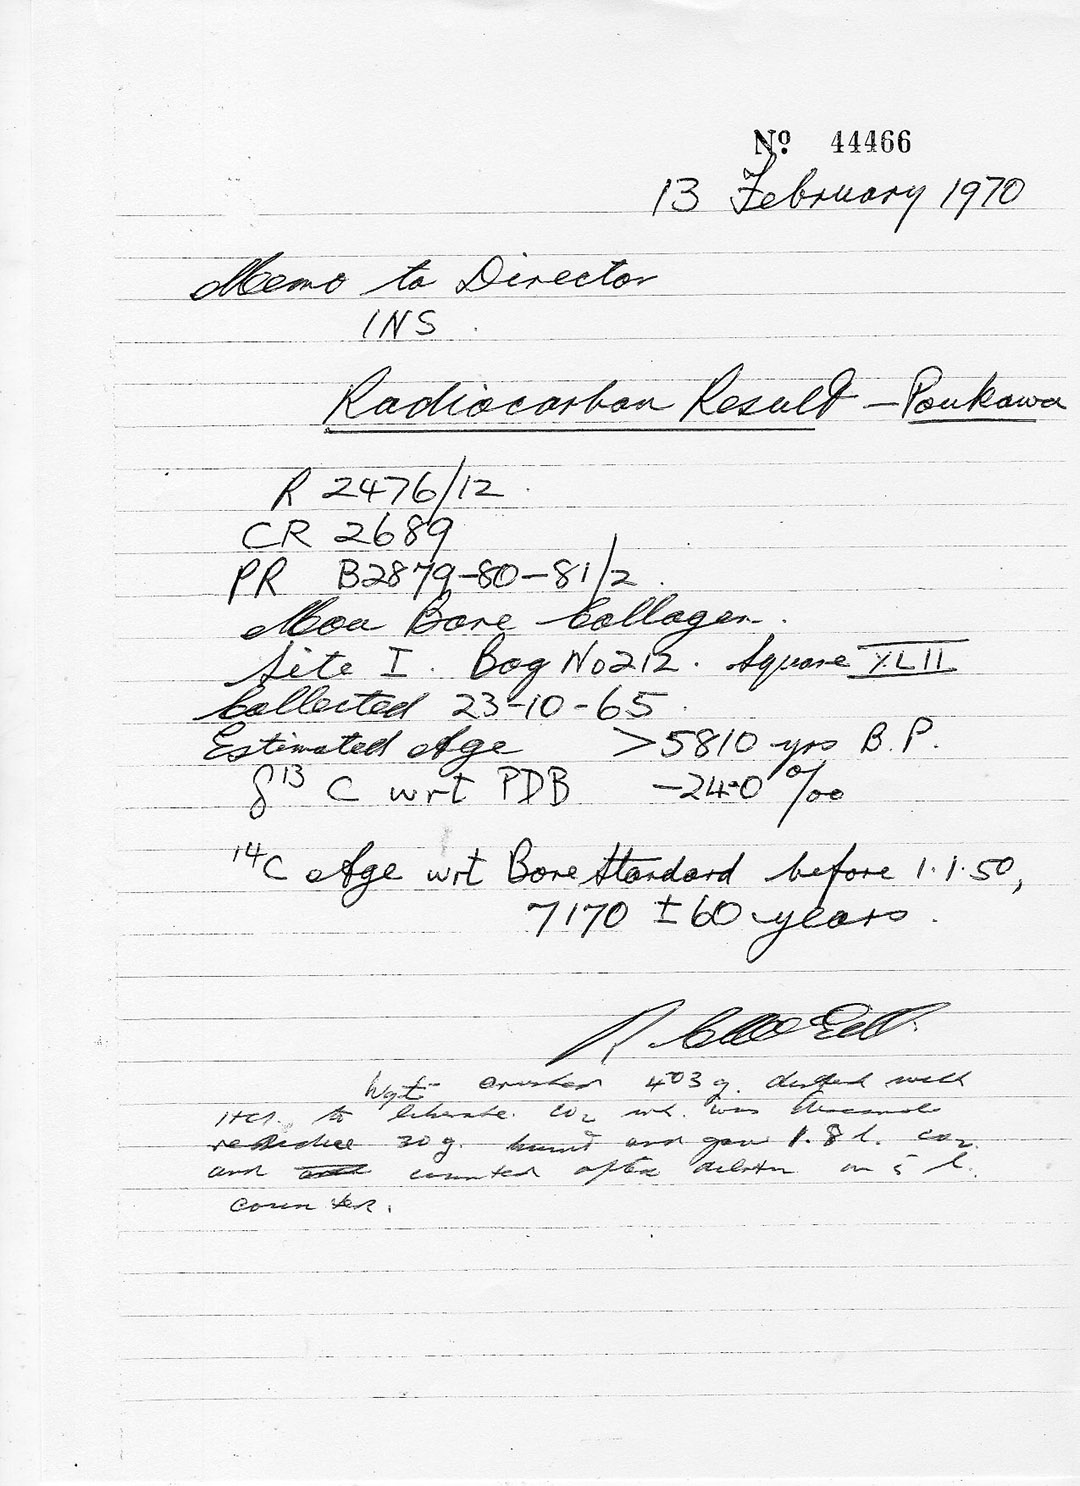 Nº 44466
13 February 1970
Memo to Director
INS
Radiocarbon Result - Poukawa
R 2476/12
CR 2689
PR B2879-80-81/2
Moa Bone Collagen.
Site I. Bag No 212. Square XLII
Collected 23-10-65
Estimated Age >5810 yrs B.P.
δ13 C wrt PDB -24.0 ‰
14C Age wrt Bone Standard before 1.1.50,
7170 ± 60 years.
Wgt crushed 403 g. with
HCl. to liberate CO2 wh. was
residue 30 g. burnt and gave 1.8 l. CO2
and counted after dilution in 5 l.
counter.